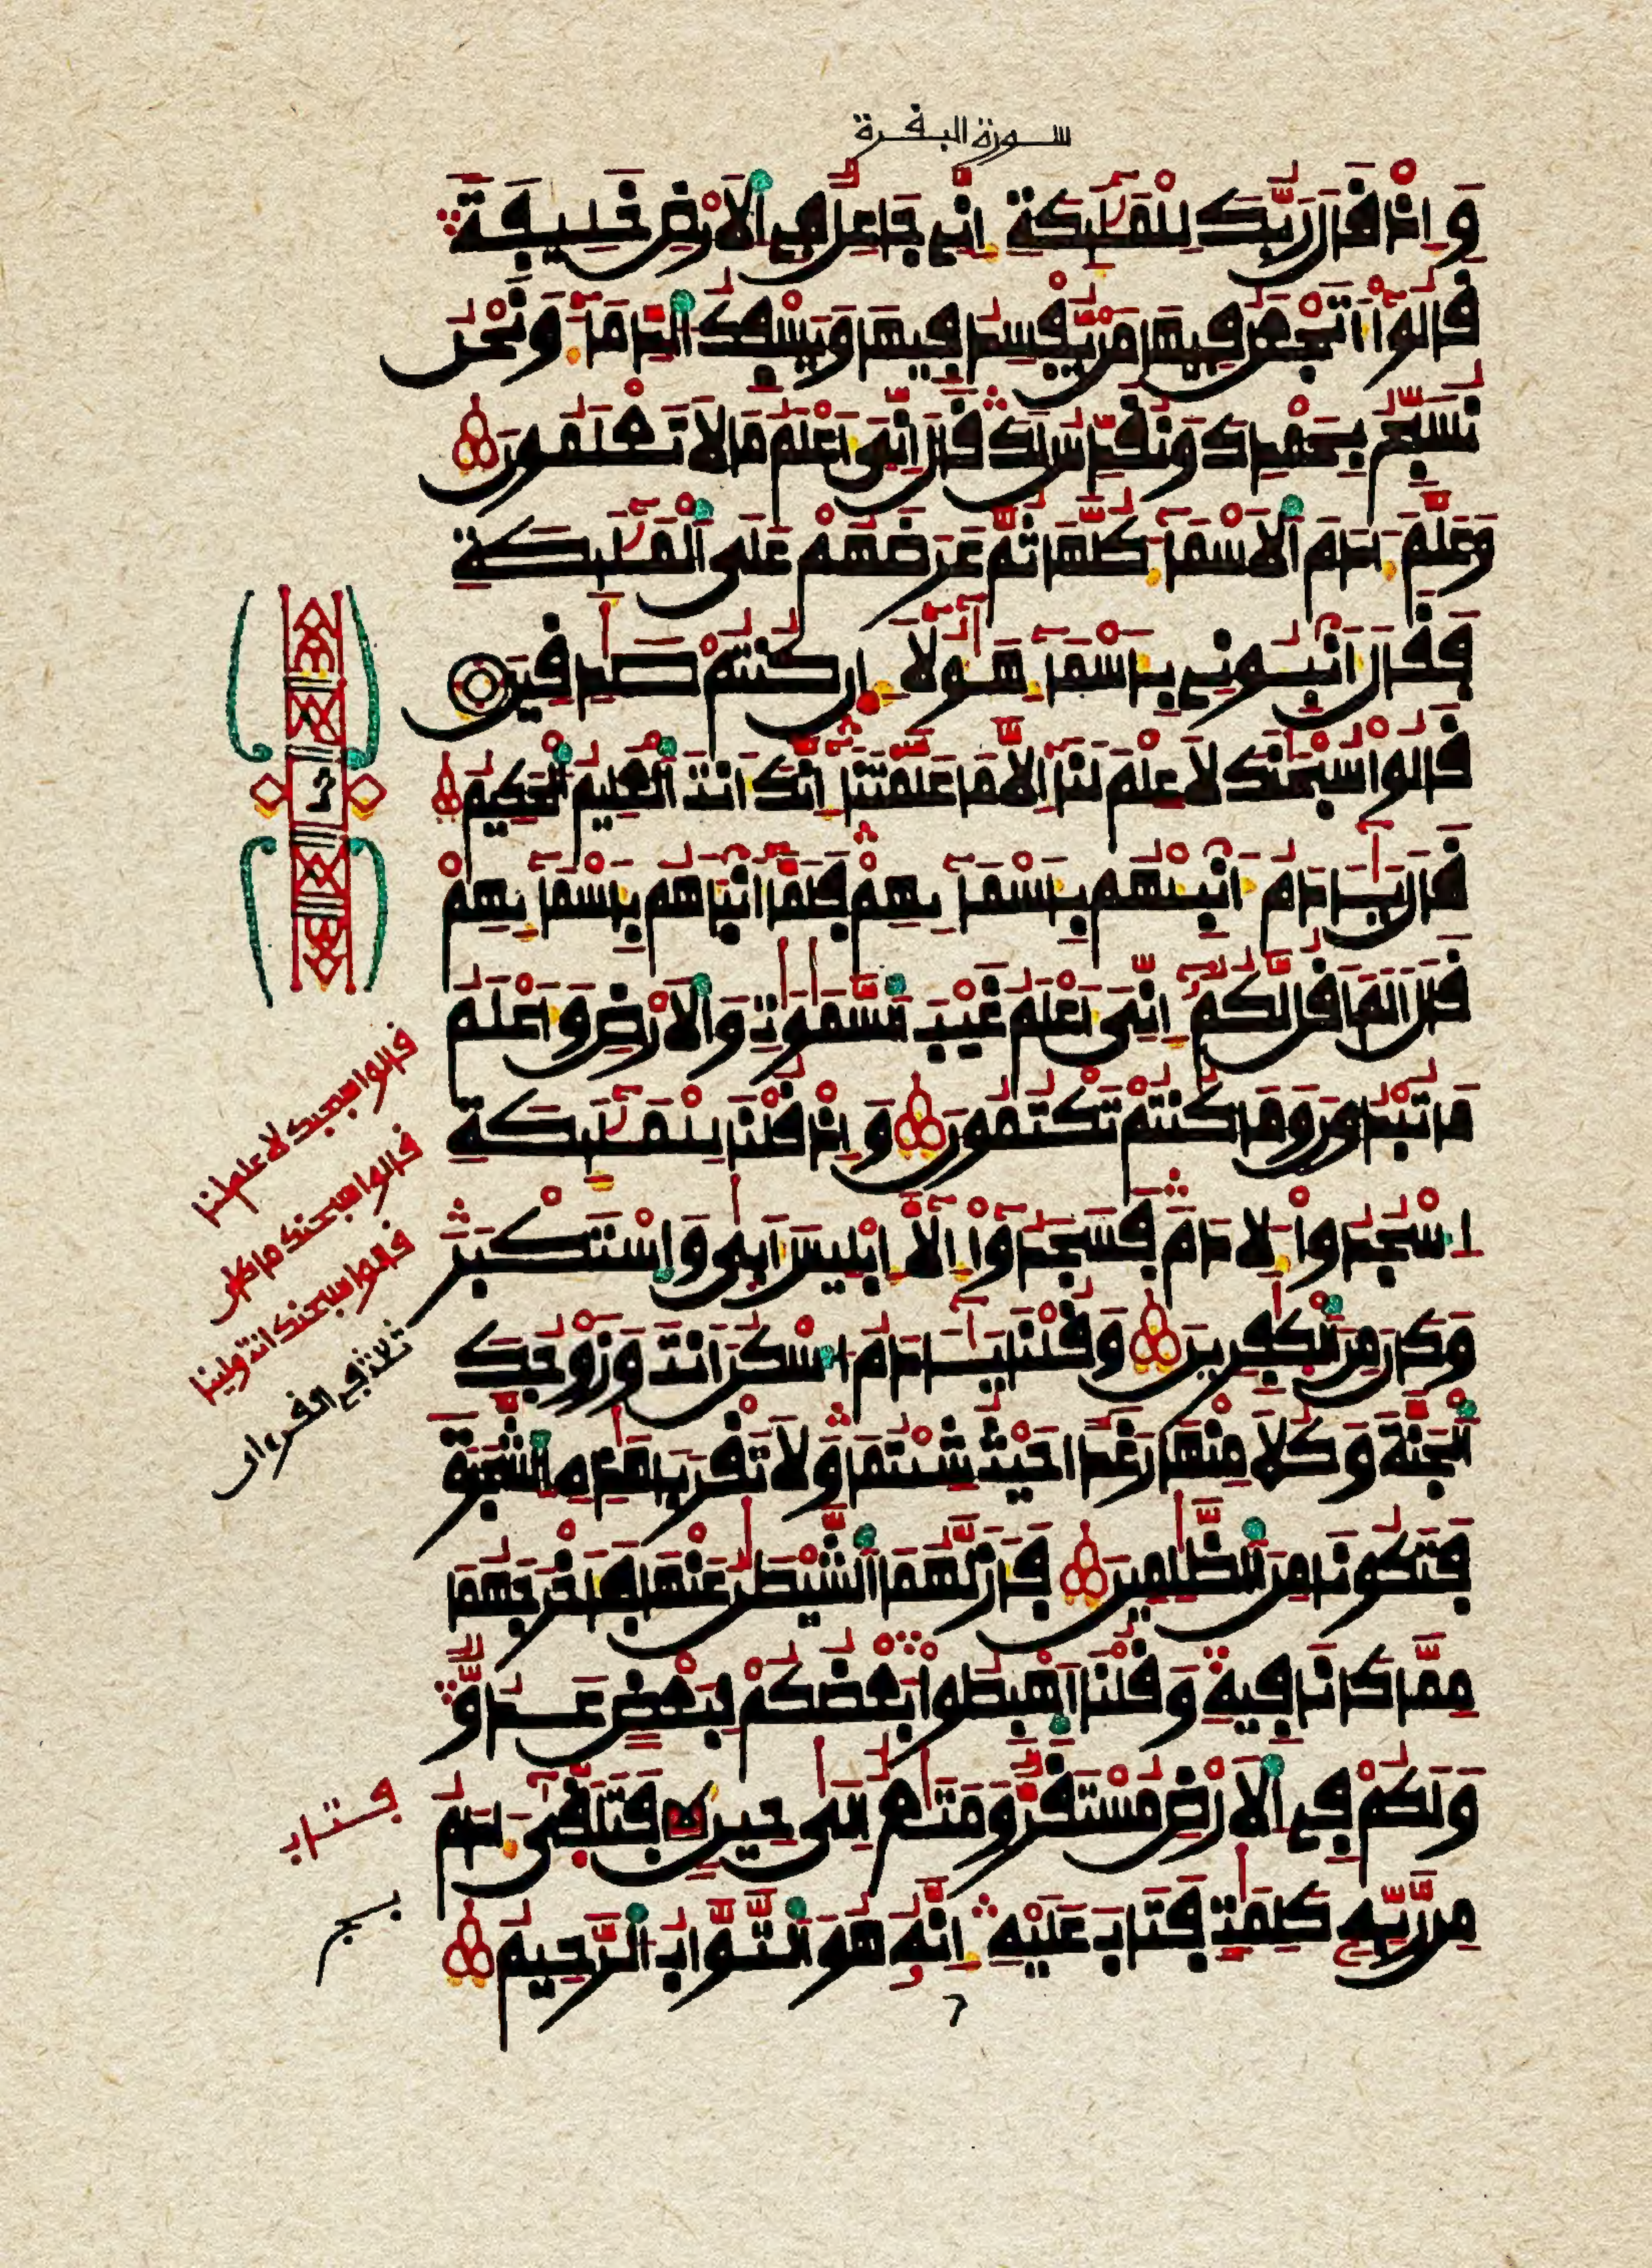 سورة البقرة
وَإِذْ قَالَ رَبُّكَ لِلْمَلَٰٓئِكَةِ إِنِّے جَاعِلٌ فِے اِ۬لَارْضِ خَلِيفَةٗ
قَالُوٓاْ أَتَجْعَلُ فِيهَا مَنْ يُّفْسِدُ فِيهَا وَيَسْفِكُ اُ۬لدِّمَآءَ وَنَحْنُ
نُسَبِّحُ بِحَمْدِكَ وَنُقَدِّسُ لَكَ قَالَ إِنِّيَ أَعْلَمُ مَا لَا تَعْلَمُونَ
وَعَلَّمَ ءَادَمَ اَ۬لَاسْمَآءَ كُلَّهَا ثُمَّ عَرَضَهُمْ عَلَى اَ۬لْمَلَٰٓئِكَةِ
فَقَالَ أَنۢبِـُٔونِے بِأَسْمَآءِ هَٰٓؤُلَآءِ ان كُنتُمْ صَٰدِقِينَ
قَالُواْ سُبْحَٰنَكَ لَا عِلْمَ لَنَآ إِلَّا مَا عَلَّمْتَنَآ إِنَّكَ أَنتَ اَ۬لْعَلِيمُ اُ۬لْحَكِيمُ
قَالَ يَٰٓـَٔادَمُ أَنۢبِئْهُم بِأَسْمَآئِهِمْ فَلَمَّآ أَنۢبَأَهُم بِأَسْمَآئِهِمْ
قَالَ أَلَمَ اَقُل لَّكُمُۥٓ إِنِّيَ أَعْلَمُ غَيْبَ اَ۬لسَّمَٰوَٰتِ وَالَارْضِ وَأَعْلَمُ
مَا تُبْدُونَ وَمَا كُنتُمْ تَكْتُمُونَ وَإِذْ قُلْنَا لِلْمَلَٰٓئِكَةِ
اِ۟سْجُدُواْ لِأٓدَمَ فَسَجَدُوٓاْ إِلَّآ إِبْلِيسَ أَب۪يٰ وَاسْتَكْبَرَ
وَكَانَ مِنَ اَ۬لْكٰ۪فِرِينَ وَقُلْنَا يَٰٓـَٔادَمُ اُ۟سْكُنَ اَنتَ وَزَوْجُكَ
اَ۬لْجَنَّةَ وَكُلَا مِنْهَا رَغَداً حَيْثُ شِئْتُمَا وَلَا تَقْرَبَا هَٰذِهِ اِ۬لشَّجَرَةَ
فَتَكُونَا مِنَ اَ۬لظَّٰلِمِينَ فَأَزَلَّهُمَا اَ۬لشَّيْطَٰنُ عَنْهَا فَأَخْرَجَهُمَا
مِمَّا كَانَا فِيهِ وَقُلْنَا اَ۪هْبِطُواْ بَعْضُكُمْ لِبَعْضٍ عَدُوّٞ
وَلَكُمْ فِے اِ۬لَارْضِ مُسْتَقَرّٞ وَمَتَٰعٌ اِلَىٰ حِينٖ فَتَلَقّ۪يٰٓ ءَادَمُ
مِن رَّبِّهِۦ كَلِمَٰتٖ فَتَابَ عَلَيْهِ إِنَّهُۥ هُوَ اَ۬لتَّوَّابُ اُ۬لرَّحِيمُ
قالوا سبحنك لا علم لنا
قالوا سبحنك ما كان
قالوا سبحنك انت ولينا
ثلاثة في القرءان
فتاب